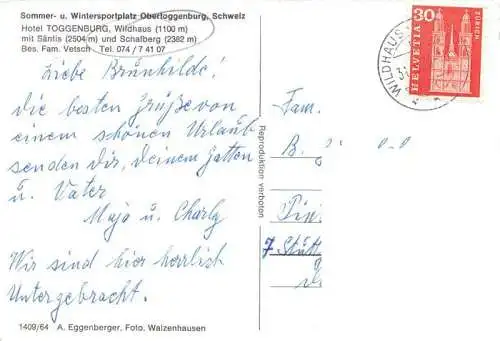 Sommer- u. Wintersportplatz Obertoggenburg, Schweiz
Hotel TOGGENBURG, Wildhaus (1100 m)
mit Säntis (2504 m) und Schafberg (2382 m)
Bes. Fam. Vetsch Tel. 074 / 7 41 07
Liebe Brünhilde!
die besten Grüße von
einem schönen Urlaub
senden dir, deinem Gatten
u. Vater
Maja u. Charly
Wir sind hier herrlich
Untergebracht.
1409/64 A. Eggenberger, Foto, Walzenhausen
Reproduktion verboten
30
HELVETIA
ZÜRICH
WILDHAUS
Fam.
B.
7 Stutt